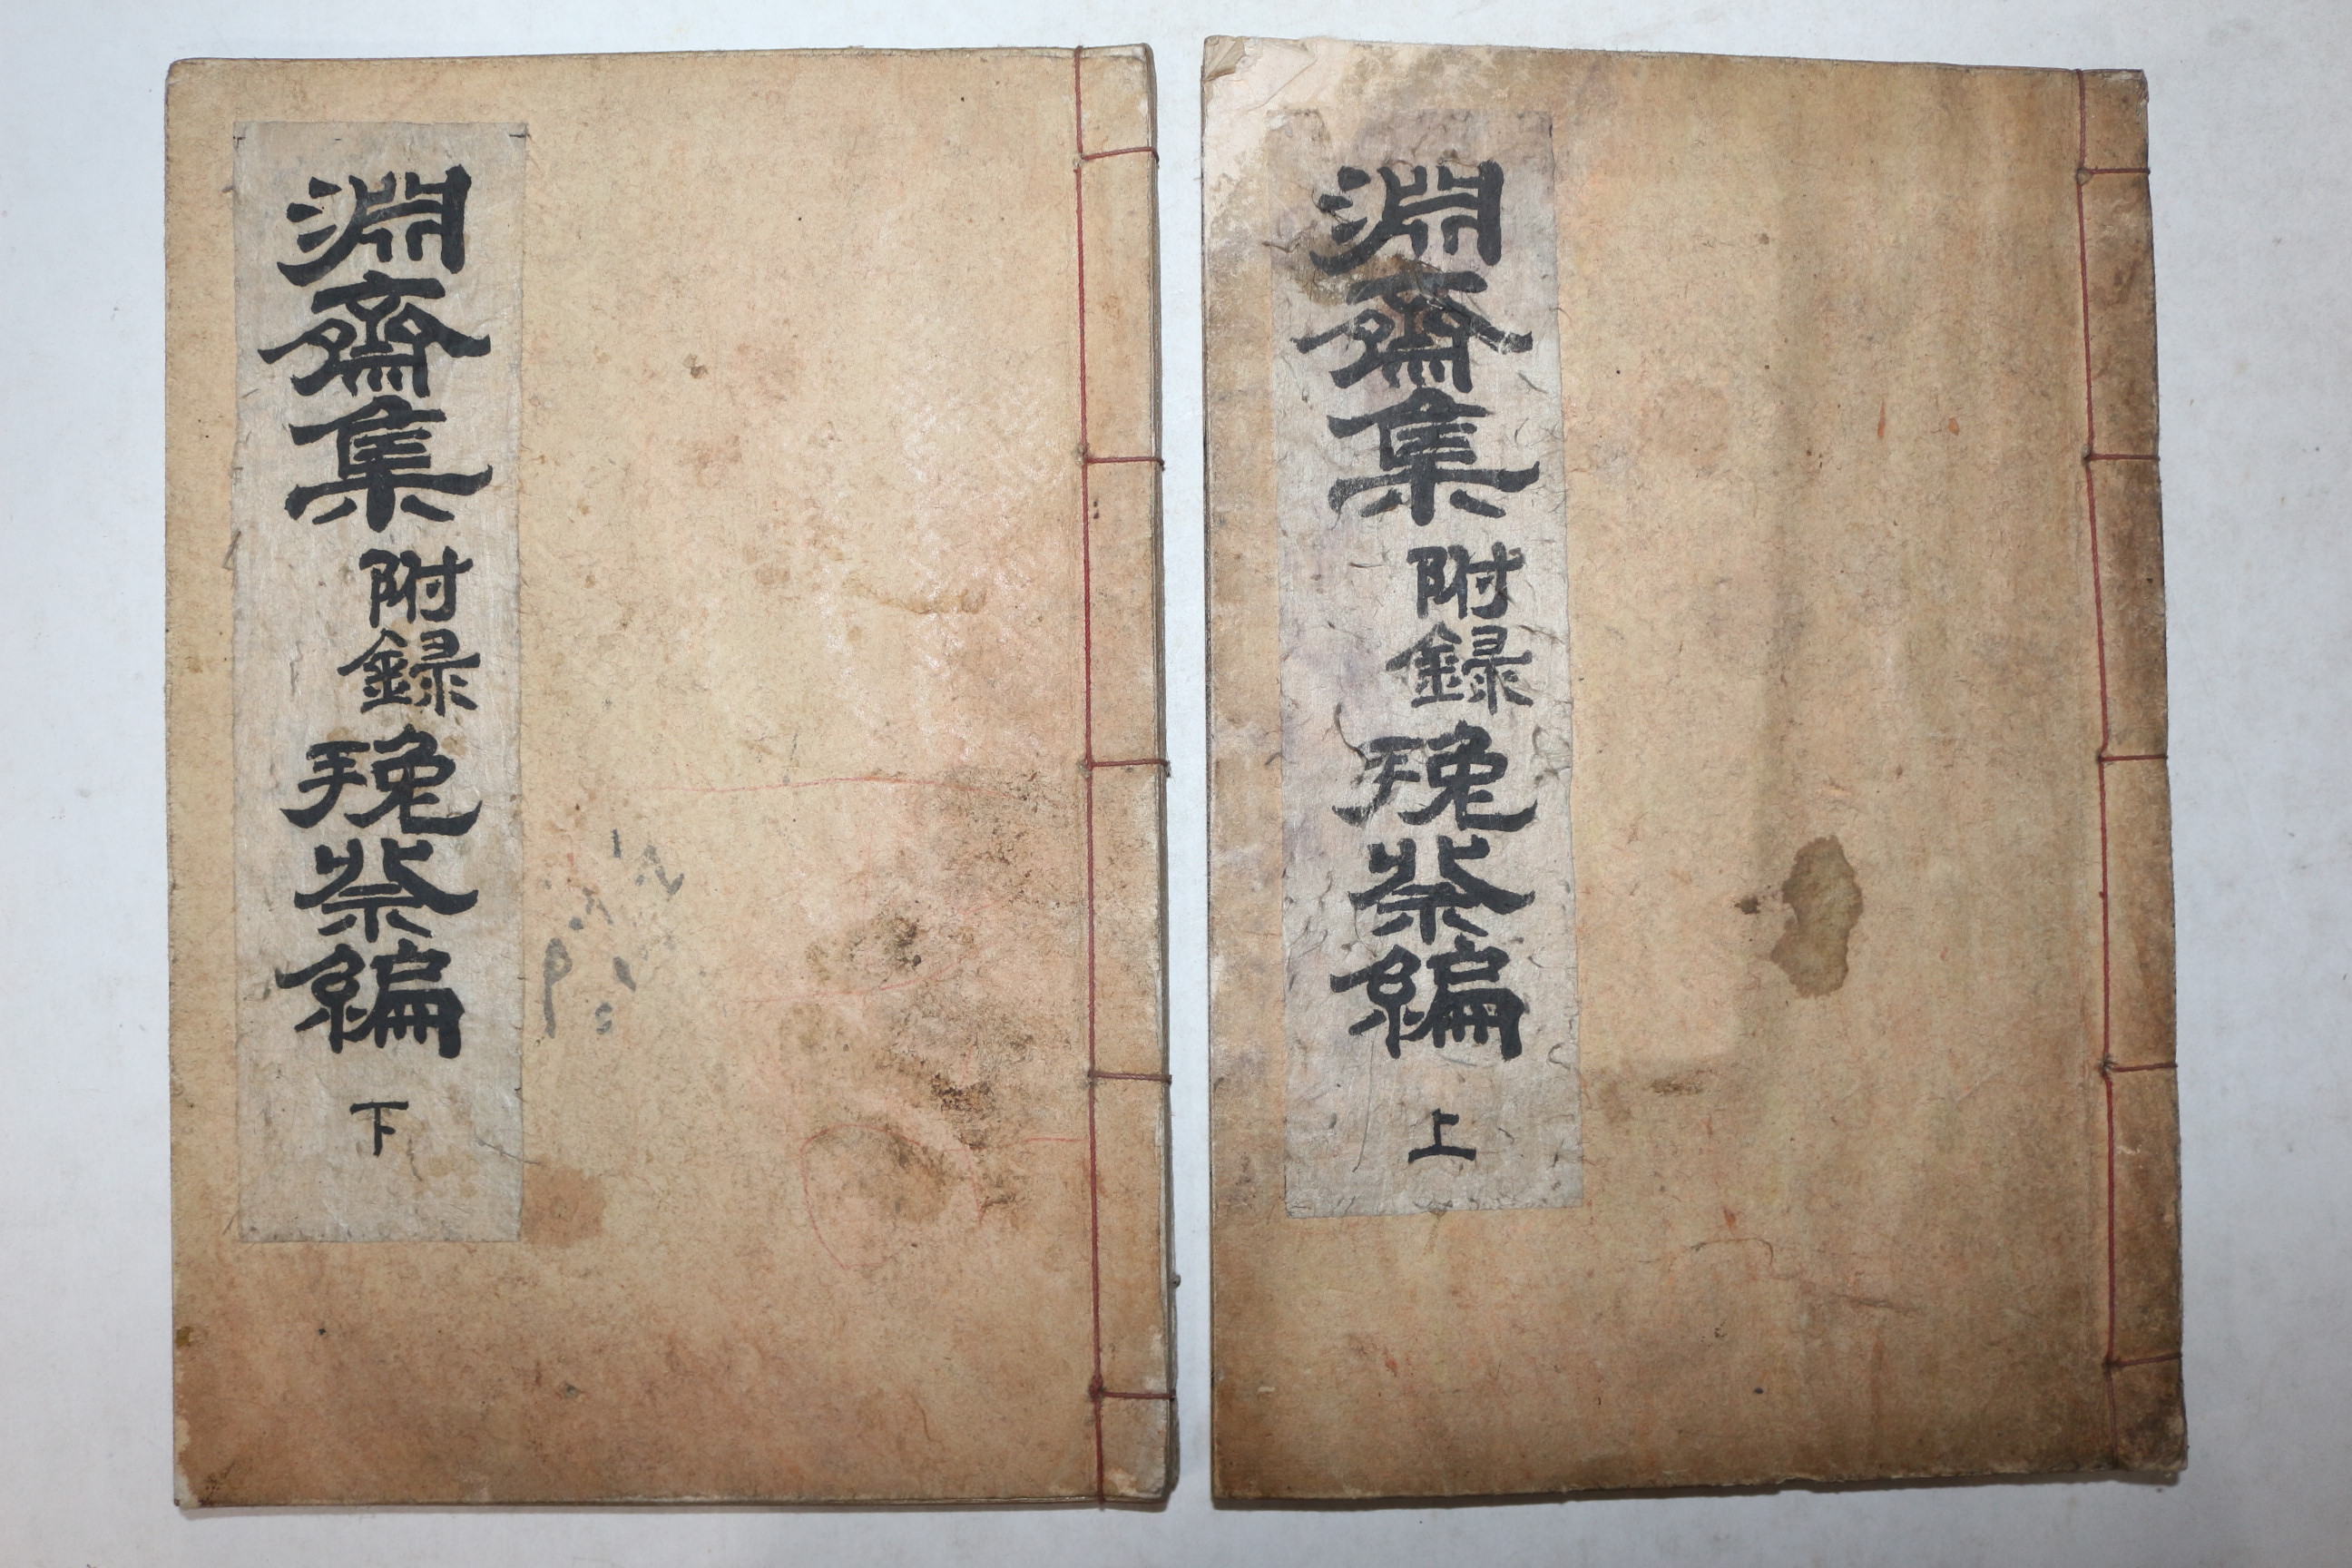 淵齋集附録挽祭編 上
淵齋集附録挽祭編 下